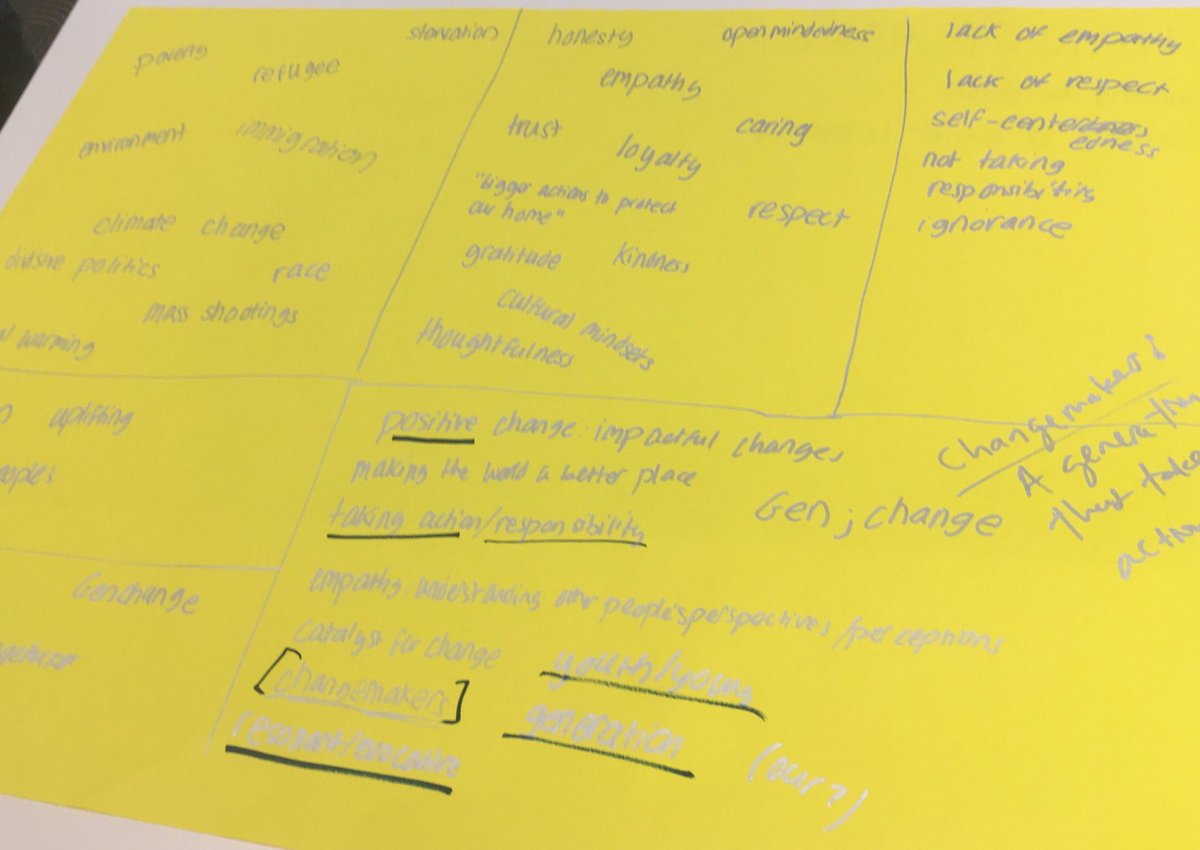 starvation
poverty
refugee
environment
immigration
climate change
divisive politics
race
mass shootings
al warming
honesty
openmindedness
empathy
trust
caring
loyalty
"bigger actions to protect
our home"
respect
gratitude
kindness
cultural mindsets
thoughtfulness
lack of empathy
lack of respect
self-center
edness
not taking
ignorance
uplifting
Genchange
positive change: impactful changes
making the world a better place
taking action/responsibility
Gen; change
Changemakers:
A generation
that take
empathy: understanding other people's perspectives/perceptions
catalyst for change
[changemakers]
youth/young
generation
(our?)
resonant/evocative